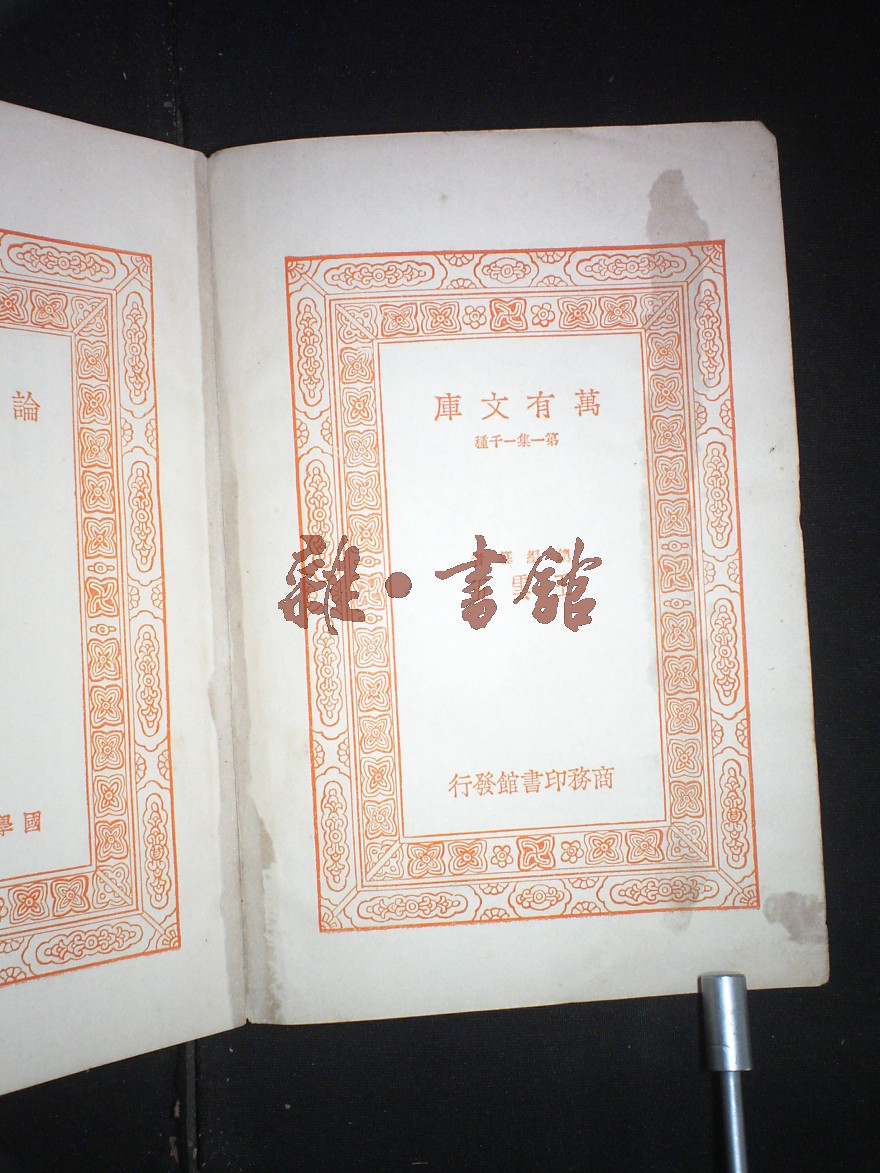 萬有文庫
第一集一千種
雜·書館
商務印書館發行
論
國學